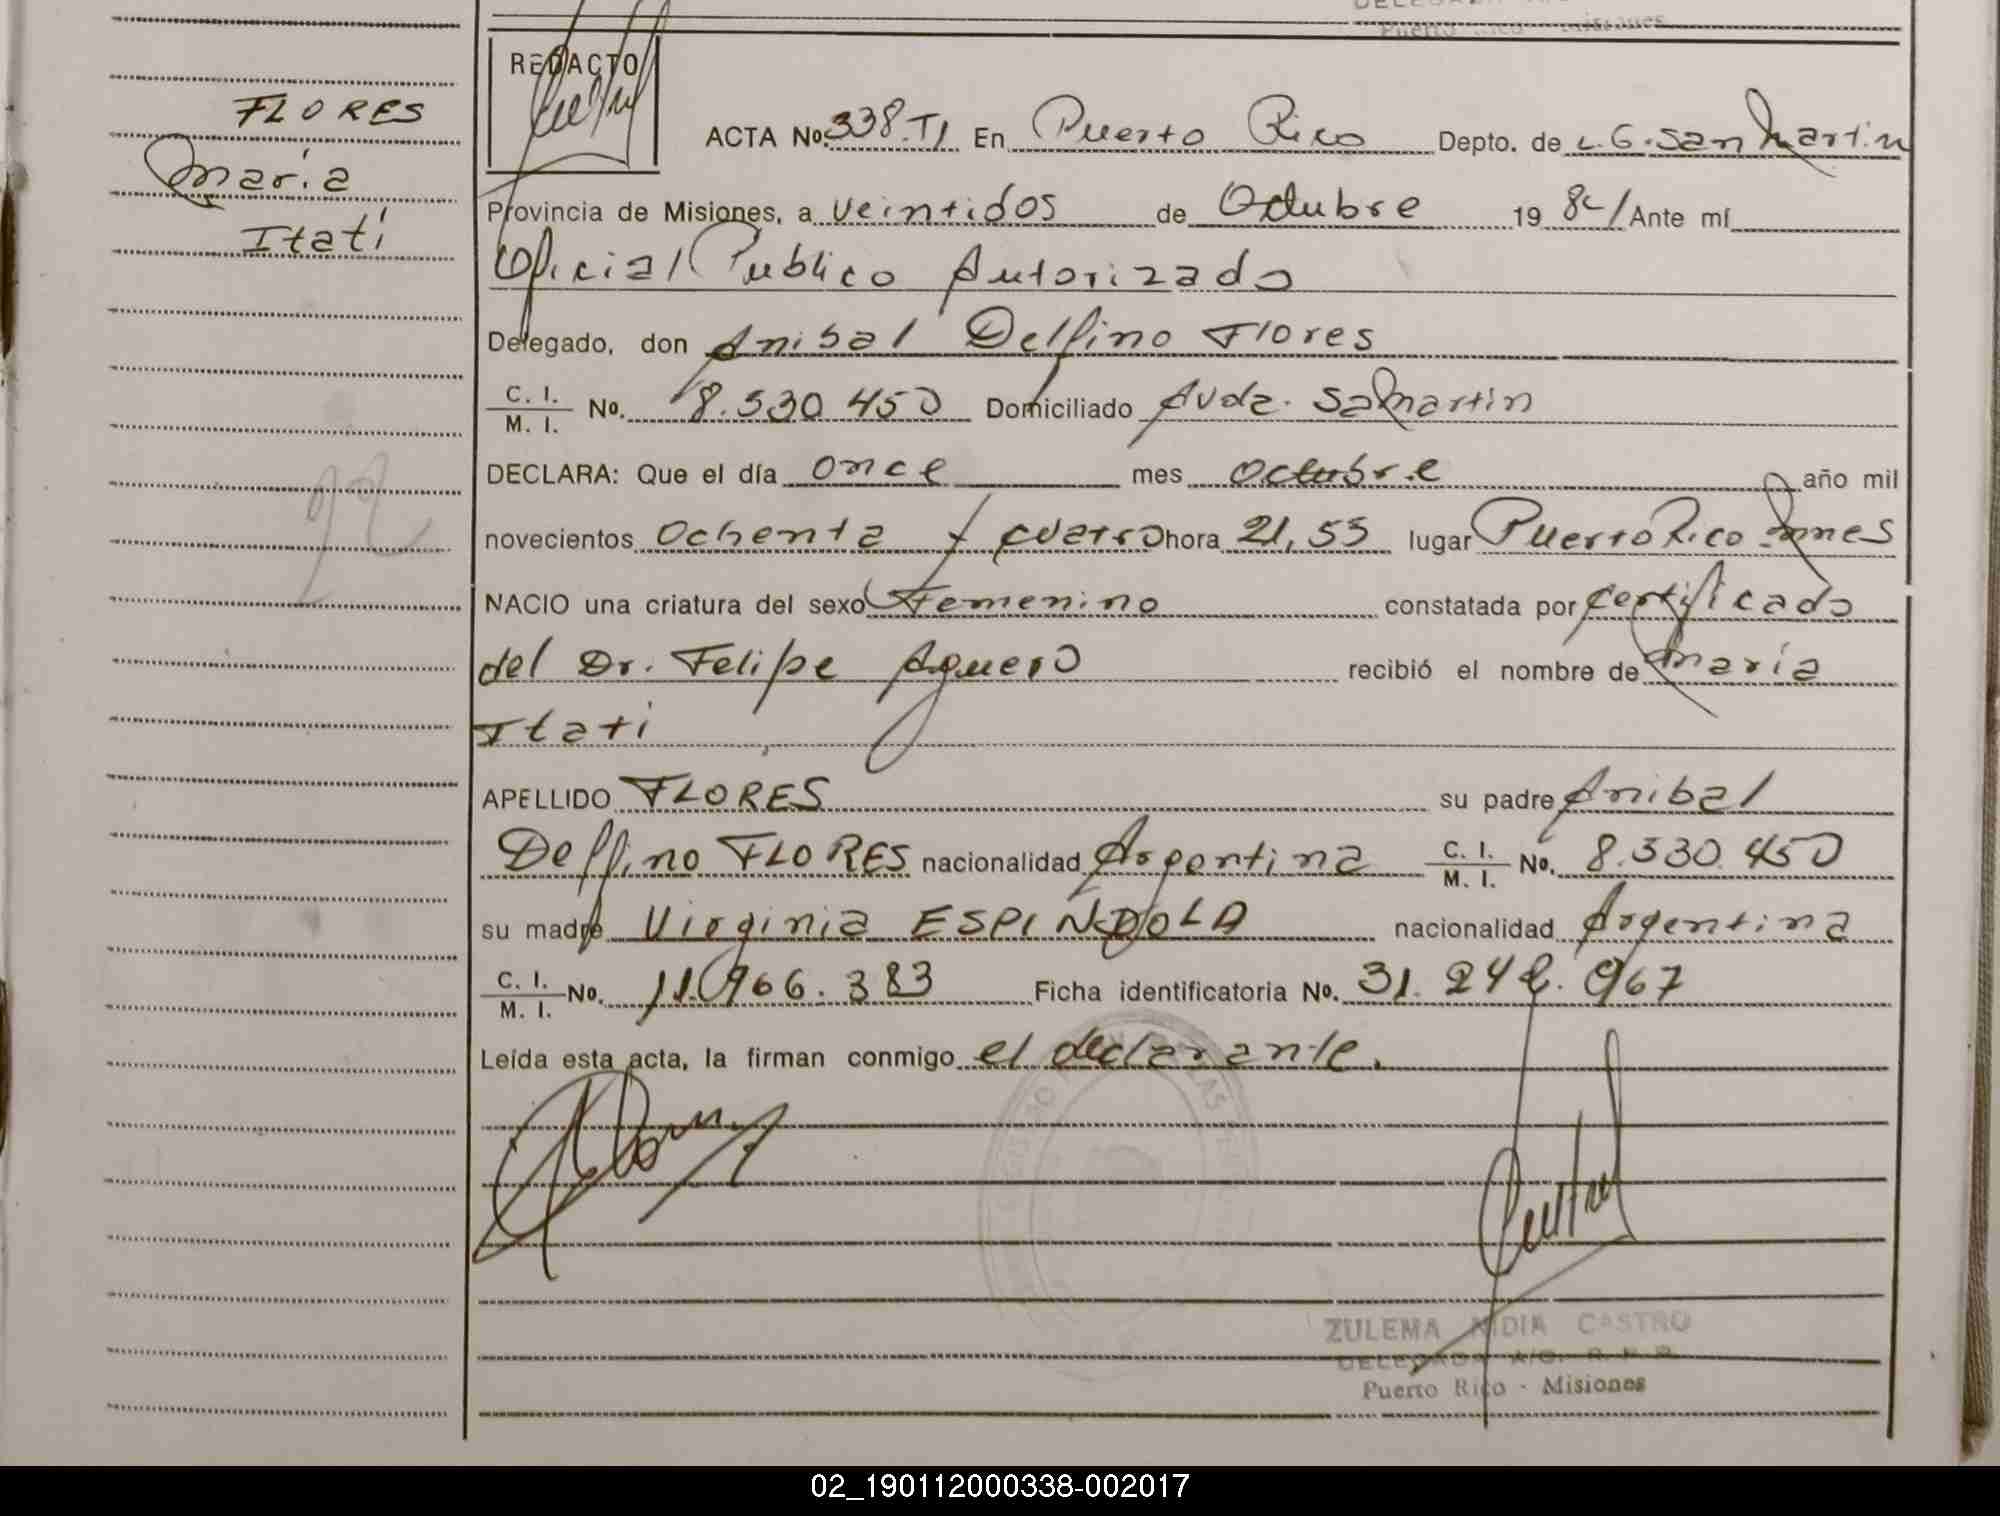 Puerto Rico Misiones
REDACTO
FLORES
María
Itatí
ACTA No. 338.TI En Puerto Rico Depto. de L.G.San Martin
Provincia de Misiones, a veintidos de Octubre 19 84 Ante mí
Oficial Publico Autorizado
Delegado, don Anibal Delfino Flores
C. I. M. I. No. 8.530.450 Domiciliado Avda. San Martin
DECLARA: Que el día once mes octubre año mil
novecientos ochenta y cuatro hora 21,55 lugar Puerto Rico Mnes
NACIO una criatura del sexo Femenino constatada por certificado
del Dr. Felipe Aguero recibió el nombre de María
Itati
APELLIDO FLORES su padre Anibal
Delfino FLORES nacionalidad Argentina C. I. M. I. No. 8.530.450
su madre Virginia ESPINDOLA nacionalidad Argentina
C. I. M. I. No. 11.966.383 Ficha identificatoria No. 31.242.967
Leída esta acta, la firman conmigo el declarante.
ZULEMA NIDIA CASTRO
DELEGADA A/C. R.P.P.
Puerto Rico - Misiones
02_190112000338-002017